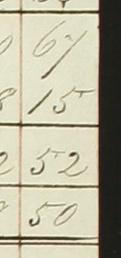 67
8 15
2 52
50